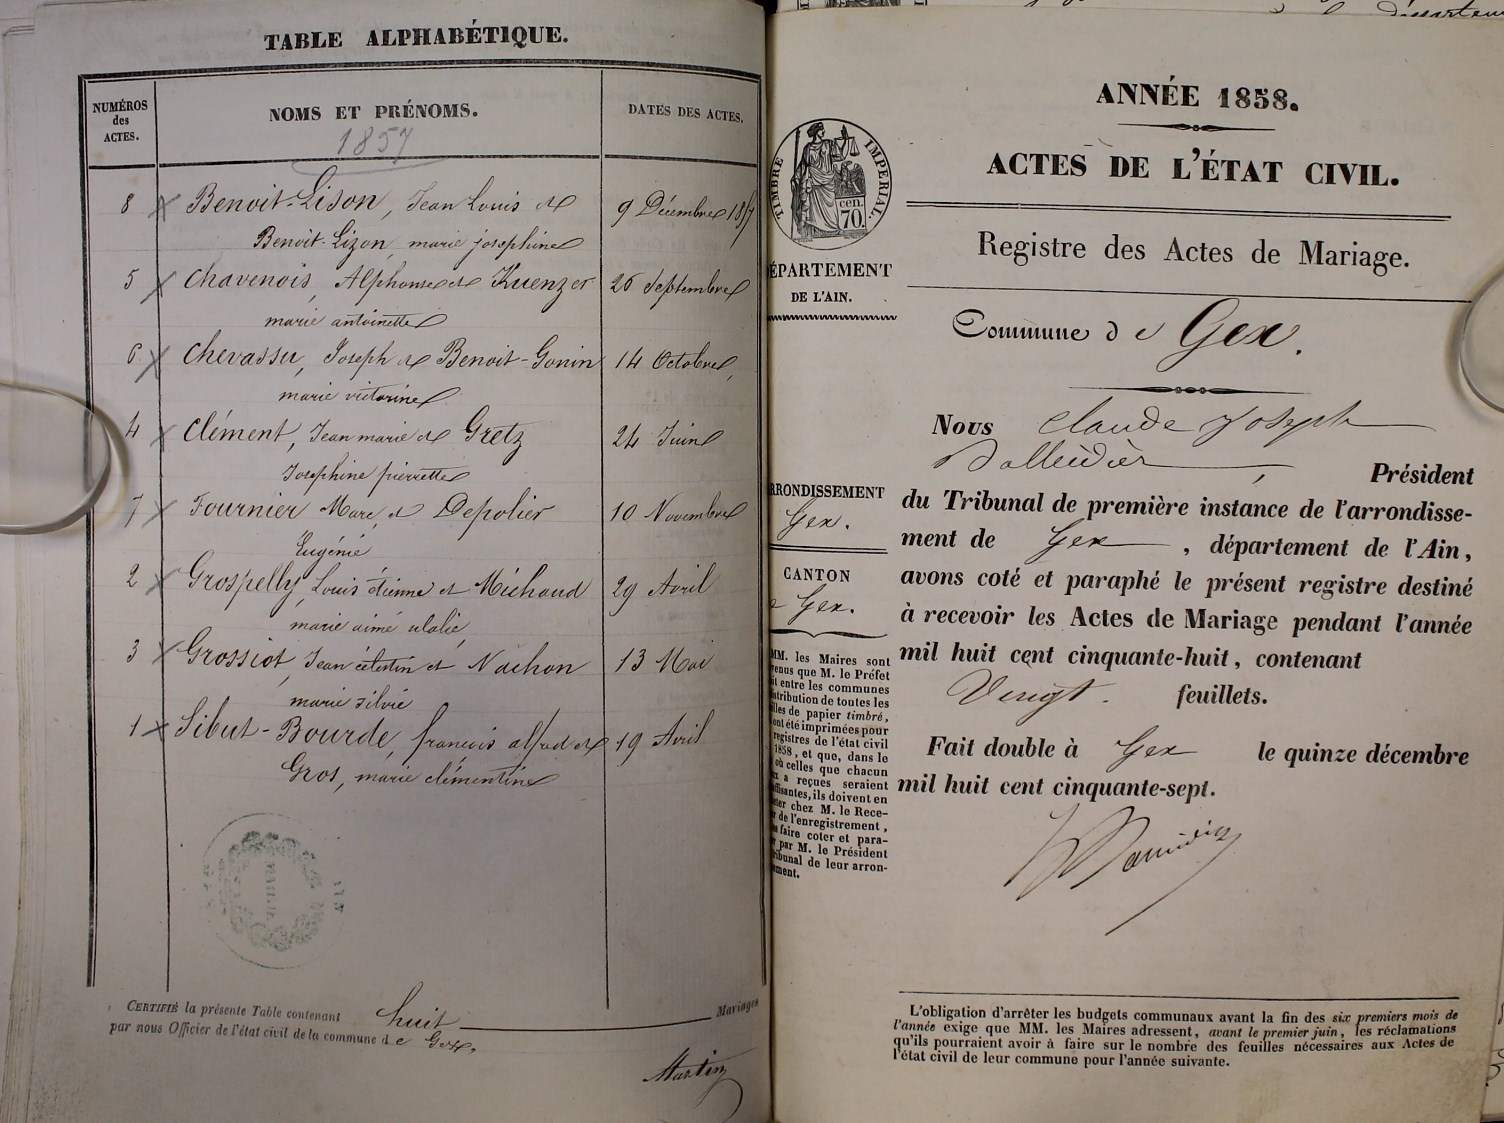 TABLE ALPHABÉTIQUE.
NUMÉROS
des
ACTES.
NOMS ET PRÉNOMS.
DATES DES ACTES.
1857
8 Benoit-Lison, Jean Louis et 9 Décembre 1857
Benoit-Lizon marie josephine
5 Chavenois, Alphonse et Kuenzer 26 Septembre
marie antoinette
6 Chevassu, Joseph et Benoit-Gonin 14 Octobre,
marie victorine
4 Clément, Jean marie et Gretz 24 Juin
Josephine pierrette
7 Fournier Marc, et Depolier 10 Novembre
Eugénie
2 Grospelly, Louis étienne et Michaud 29 Avril
marie aimé ulalie,
3 Grossiot, Jean célestin et Nachon 13 Mai
marie silvie
1 Sibut-Bourde, françois alfred et 19 Avril
Gros, marie clémentine
CERTIFIÉ la présente Table contenant huit Mariages
par nous Officier de l'état civil de la commune de Gex.
Martin
ANNÉE 1858.
ACTES DE L'ÉTAT CIVIL.
Registre des Actes de Mariage.
Commune de Gex.
TIMBRE IMPERIAL.
cen.
70.
ÉPARTEMENT
DE L'AIN.
RRONDISSEMENT
Gex.
CANTON
Gex.
MM. les Maires sont
renus que M. le Préfet
it entre les communes
stribution de toutes les
illes de papier timbré,
ont été imprimées pour
registres de l'état civil
1858, et que, dans le
où celles que chacun
ux a reçues seraient
ffisantes, ils doivent en
eter chez M. le Rece-
r de l'enregistrement,
es faire coter et para-
er par M. le Président
ribunal de leur arron-
ement.
Nous Claude Joseph
Dalleidier, Président
du Tribunal de première instance de l'arrondisse-
ment de Gex, département de l'Ain,
avons coté et paraphé le présent registre destiné
à recevoir les Actes de Mariage pendant l'année
mil huit cent cinquante-huit, contenant
Vingt. feuillets.
Fait double à Gex le quinze décembre
mil huit cent cinquante-sept.
L'obligation d'arrêter les budgets communaux avant la fin des six premiers mois de
l'année exige que MM. les Maires adressent, avant le premier juin, les réclamations
qu'ils pourraient avoir à faire sur le nombre des feuilles nécessaires aux Actes de
l'état civil de leur commune pour l'année suivante.